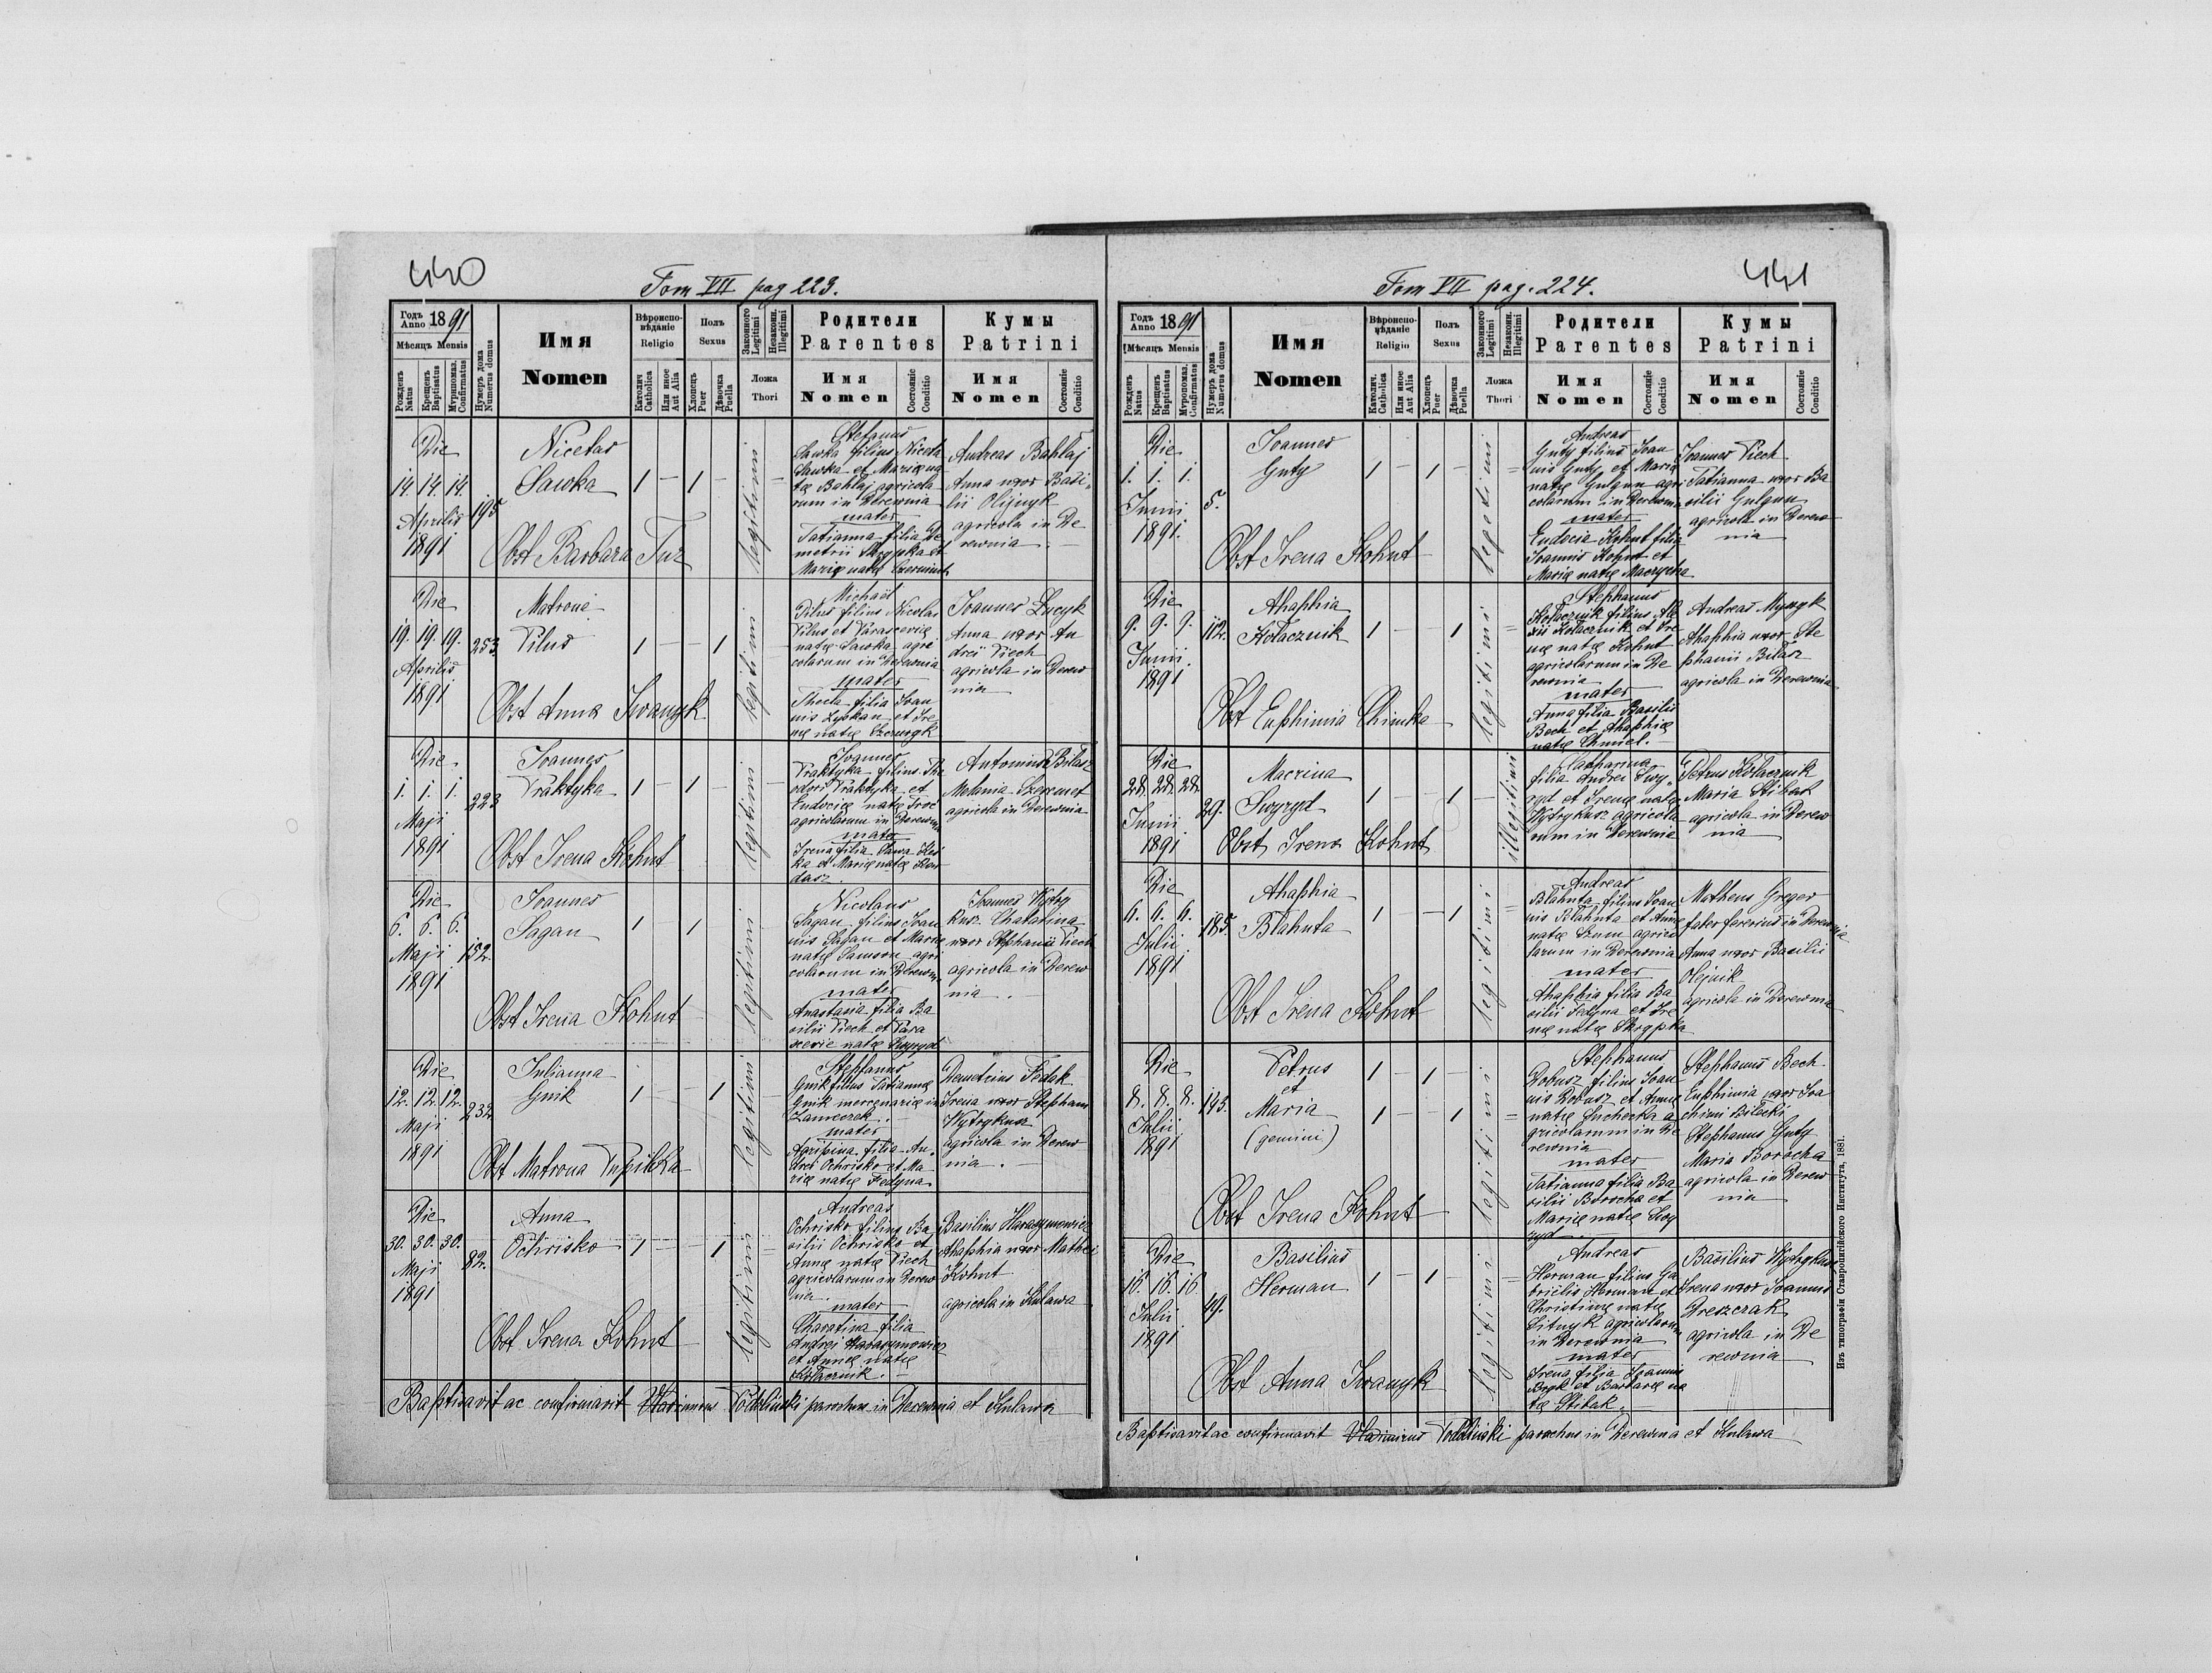 440
Tom VII pag 223.
Годъ Anno 1891
Мѣсяцъ Mensis
Рожденъ Natus
Крещенъ Baptisatus
Муропомаз. Confirmatus
Нумеръ дома Numerus domus
Имя
Nomen
Вѣроисповѣданіе
Religio
Католич Catholica
Или иное Aut Alia
Полъ
Sexus
Хлопецъ Puer
Дѣвочка Puella
Законного Legitimi
Незаконн. Illegitimi
Ложа
Thori
Родители
Parentes
Имя
Nomen
Состояніе Conditio
Кумы
Patrini
Имя
Nomen
Состояніе Conditio
Die
14. 14. 14.
Aprilis
1891
195
Nicetas
Sawka
Obst Barbara Tuz
1 — 1 —
legitimi
Stefanus
Sawka filius Niceta
Sawka et Mariæ na
tæ Bahlaj agricola
rum in Derewnia
mater
Tatianna filia De
metrii Skrypka et
Mariæ natæ
Andreas Bahlaj
Anna uxor Basi
lii Olijnyk
agricola in De
rewnia
Die
19. 19. 19.
Aprilis
1891
253.
Matrona
Pilus
Obst Anna Iwanyk
1 — — 1
legitimi
Michaël
Pilus filius Nicolai
Pilus et Parasceviæ
natæ Sawka agri
colarum in Derewnia
mater
Thecla filia Joan
nis Lyskan et Ire
næ natæ
Joannes Łucyk
Anna uxor An
drei Piech
agricola in Derew
nia
Die
1. 1. 1.
Maji
1891
223
Joannes
Praktyka
Obst Irena Kohut
1 — 1 —
legitimi
Joannes
Praktyka filius The
odori Praktyka et
Eudociæ natæ Troć
agricolarum in Derewnia
mater
Irena filia Sawa
ka et Mariæ natæ
dasz
Antonius Bilasz
Melania Szeremet
agricola in Derewnia
Die
6. 6. 6.
Maji
1891
152.
Joannes
Sagan
Obst Irena Kohut
1 1
legitimi
Nicolaus
Sagan filius Joan
nis Sagan et Mariæ
natæ Samson agri
colarum in Derewnia
mater
Anastasia filia Ba
silii Piech et Para
scevie natæ Swyryd
Joannes Wytry
kusz. Charatina
uxor Stephanii Piech
agricola in Derew
nia.
Die
12. 12. 12.
Maji
1891
232.
Julianna
Gnik
Obst Matrona Pupilka
1 — — 1
legitimi
Stephanus
Gnik filius Tatianna
Gnik mercenariæ in
Zameczek.
mater
Agripina filia An
drei Ochrisko et Ma
riæ natæ Fedyna
Demetrius Fedak
Irena uxor Stephani
Wytrykusz
agricola in Derew
nia.
Die
30. 30. 30.
Maji
1891
82.
Anna
Ochrisko
Obst Irena Kohut
1 — — 1
legitimi
Andreas
Ochrisko filius Ba
silii Ochrisko et
Annæ natæ Piech
agricolarum in Derew
nia.
mater
Charatina filia
Andrei Harasymowicz
et Annæ natæ
Kołacznik.
Basilius Harasymowicz
Ahaphia uxor Mathei
Kohut
agricola in Kulawa
Baptisavit ac confirmavit Vladimirus Podoliński parochus in Derewnia et Kulawa
441
Tom VII pag. 224.
Годъ Anno 1891
Мѣсяцъ Mensis
Рожденъ Natus
Крещенъ Baptisatus
Муропомаз. Confirmatus
Нумеръ дома Numerus domus
Имя
Nomen
Вѣроисповѣданіе
Religio
Католич. Catholica
Или иное Aut Alia
Полъ
Sexus
Хлопецъ Puer
Дѣвочка Puella
Законного Legitimi
Незаконн. Illegitimi
Ложа
Thori
Родители
Parentes
Имя
Nomen
Состояніе Conditio
Кумы
Patrini
Имя
Nomen
Состояніе Conditio
Die
1. 1. 1.
Junii
1891.
5.
Joannes
Guty
Obst Irena Kohut
1 — 1 —
legitimi
Andreas
Guty filius Joan
nis Guty et Mariæ
natæ Gulgun agri
colarum in Derewnia
mater
Eudocia Kohut filia
Joannis Kohut et
Mariæ natæ Macrycka
Joannes Piech
Tatianna uxor Ba
silii Gulgun
agricola in Derew
nia
Die
9. 9. 9.
Junii.
1891
112.
Ahaphia
Kołacznik
Obst Euphimia Chimka
1 — — 1
legitimi
Stephanus
Kołacznik filius Ale
xii Kołacznik et Ire
næ natæ Kohut
agricolarum in De
rewnia
mater
Anna filia Basilii
Bech et Ahaphiæ
natæ Chmiel.
Andreas Myzyk
Ahaphia uxor Ste
phanii Bilasz
agricola in Derewnia
Die
22. 22. 22.
Junii
1891
29.
Macrina
Swyryd
Obst Irena Kohut
1 — — 1
illegitimi
Catharina
filia Andrei Swy
ryd et Irenæ natæ
Wytrykusz agricola
rum in Derewnia
Petrus Kołacznik
Maria Stibak
agricola in Derew
nia
Die
6. 6. 6.
Julii.
1891
185.
Ahaphia
Błahuta
Obst Irena Kohut
1 — — 1
legitimi
Andreas
Błahuta filius Joan
nis Błahuta et Annæ
natæ Szum agrico
larum in Derewnia
mater
Ahaphia filia Ba
silii Fedyna et Ire
næ natæ Skrypka
Matheus Greger
faber ferrerius in Derewnia
Anna uxor Basilii
Olejnik
agricola in Derewnia
Die
8. 8. 8.
Julii
1891
193.
Petrus
et
Maria
(gemini)
Obst Irena Kohut
1 — 1 —
1 — — 1
legitimi
Stephanus
Dobusz filius Joan
nis Dobusz et Annæ
natæ Suchecka a
gricolarum in De
rewnia
mater
Tatianna filia Ba
silii Borocha et
Mariæ natæ Swy
ryd
Stephanus Bech
Euphimia uxor Joa
chimi Bilecki
Stephanus Guty
Maria Borocha
agricola in Derew
nia
Die
16. 16. 16.
Julii
1891
49.
Basilius
Herman
Obst Anna Iwanyk
1 — 1 —
legitimi
Andreas
Herman filius Ga
brielis Herman et
Christinæ natæ
Lituyk agricolarum
in Derewnia
mater
Irena filia Joannis
Bryk et Barbaræ na
tæ Stibak.
Basilius Wytrykusz
Irena uxor Joannis
Dreszczak
agricola in De
rewnia
Baptisavit ac confirmavit Vladimirus Podoliński parochus in Derewnia et Kulawa
Изъ типографіи Ставропигійского Института, 1881.